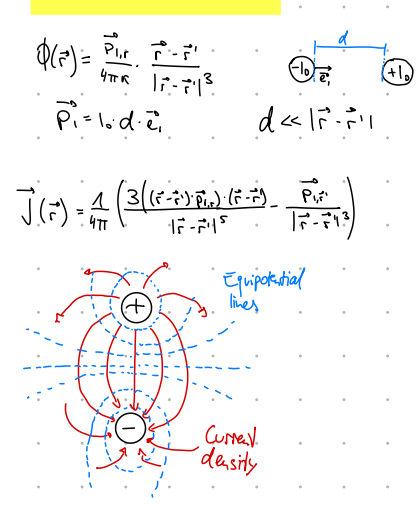 ϕ(r⃗) = p⃗₁,ᵣ / 4πκ · (r⃗ - r⃗') / |r⃗ - r⃗'|³
d
-I₀ e⃗₁ +I₀
p⃗₁ = I₀ · d · e⃗₁ d ≪ |r⃗ - r⃗'|
J⃗(r⃗) = 1/4π ( 3((r⃗-r⃗')·p⃗₁,ᵣ)·(r⃗-r⃗') / |r⃗-r⃗'|⁵ - p⃗₁,ᵣ' / |r⃗-r⃗'|³ )
Equipotential
lines
+
-
Current
density